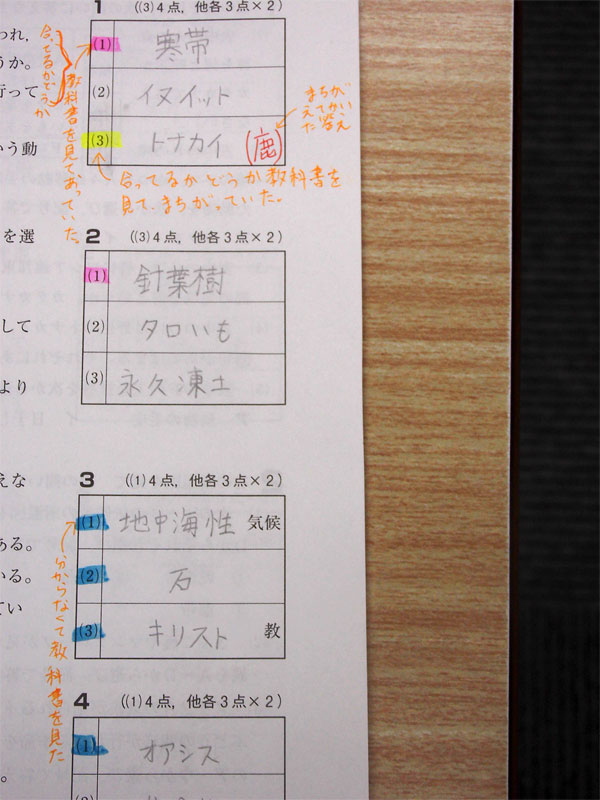 1 ((3)4点，他各3点×2)
(1) 寒帯
(2) イヌイット
(3) トナカイ (鹿)
まちが
えてかい
た答え
合ってるかどうか
教科書を見てあっていた。
合ってるかどうか教科書を
見て、まちがっていた。
われ，
うか。
行って
いう動
を選
2 ((3)4点，他各3点×2)
(1) 針葉樹
(2) タロいも
(3) 永久凍土
して
より
えな
3 ((1)4点，他各3点×2)
(1) 地中海性 気候
(2) 石
(3) キリスト 教
分からなくて教科書を見た
ある。
いる。
てい
4 ((1)4点，他各3点×2)
(1) オアシス